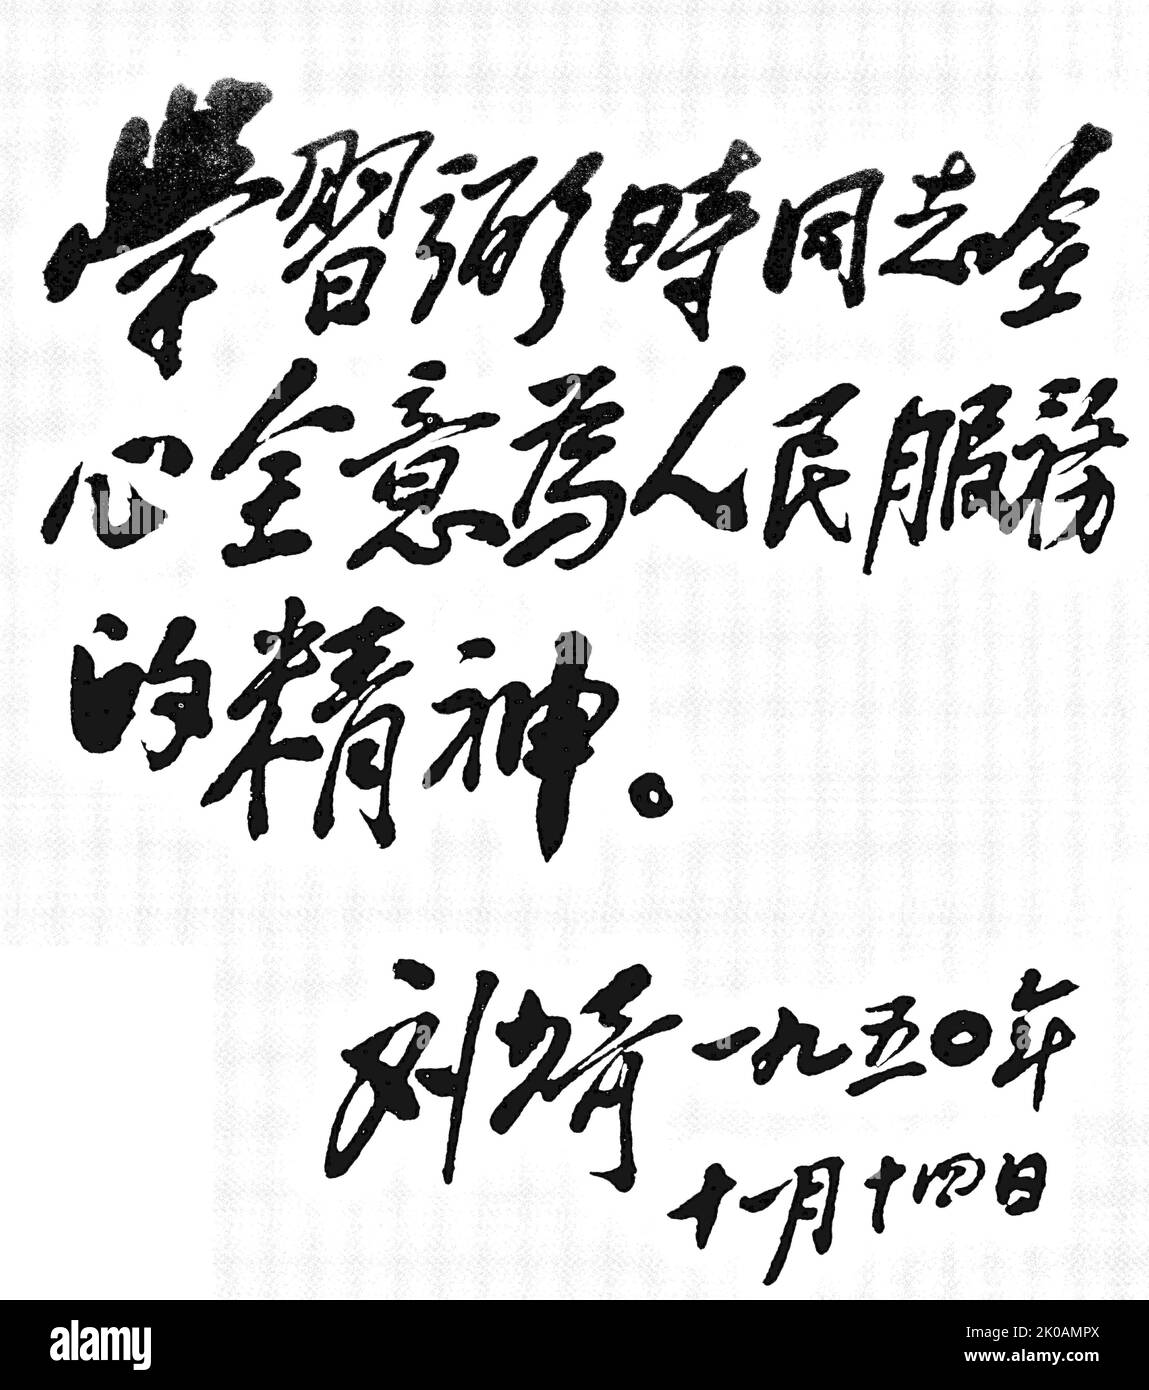 学習弼時同志全
心全意為人民服務
的精神。
刘 一九五〇年
十一月十四日
alamy
Image ID: 2K0AMPX
www.alamy.com